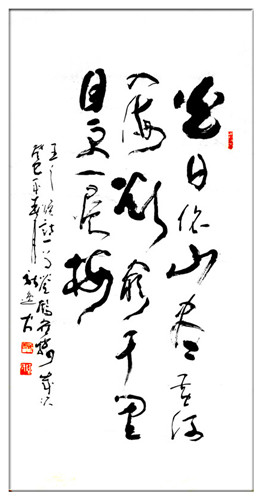 白日依山尽黄河
入海欲穷千里
目更一层楼
王之涣诗一首登鹳雀楼岁次
癸巳年春月